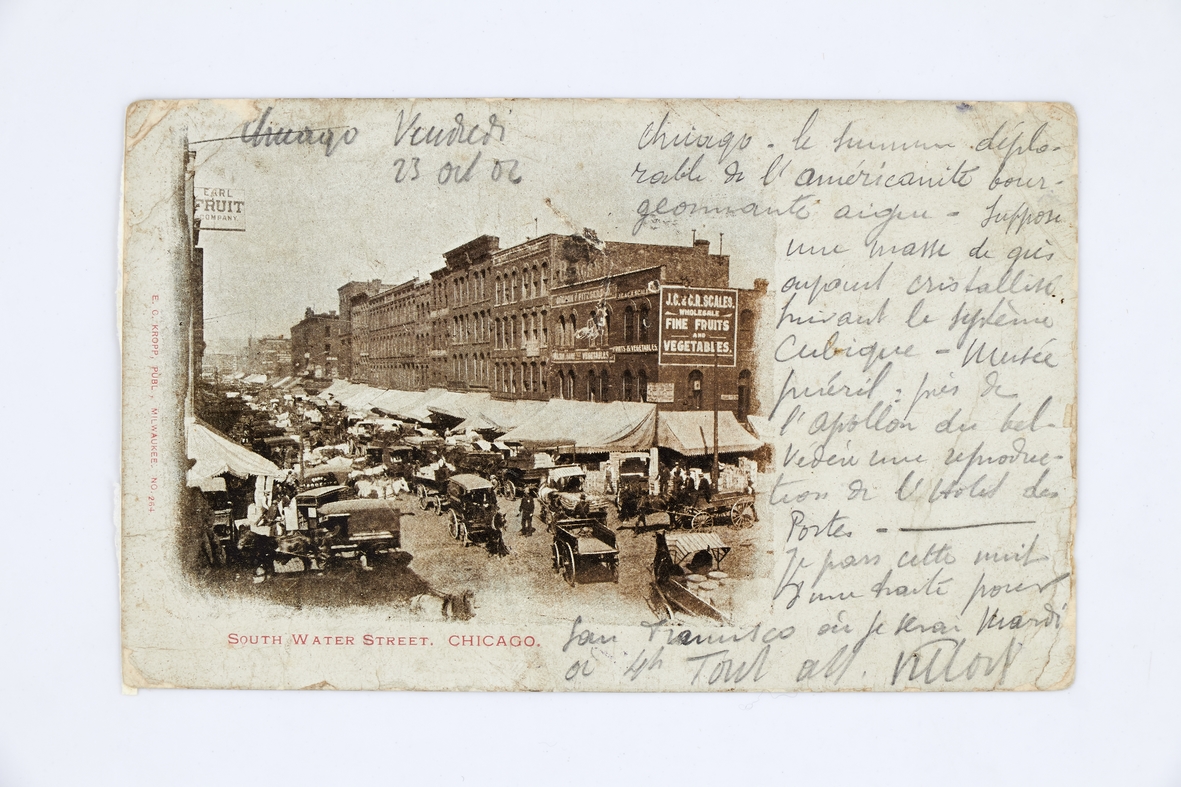 Chicago Vendredi
23 oct 02
Chicago - le summum déplo-
rable de l'américanite bour-
geonnante aigue - Suppose
une masse de grès
ayant cristallisé
suivant le système
Cubique - Musée
puéril : près de
l'Apollon du bel-
védère une reproduc-
tion de l'Hotel des
Postes -
Je pars cette nuit
d'une traite pour
San Francisco où je serai Mardi
à 4h Tout aff.
EARL
FRUIT
COMPANY.
J.C. & G.R. SCALES.
WHOLESALE
FINE FRUITS
AND
VEGETABLES.
FRUITS & VEGETABLES
E. C. KROPP, PUBL., MILWAUKEE. NO. 264
SOUTH WATER STREET. CHICAGO.